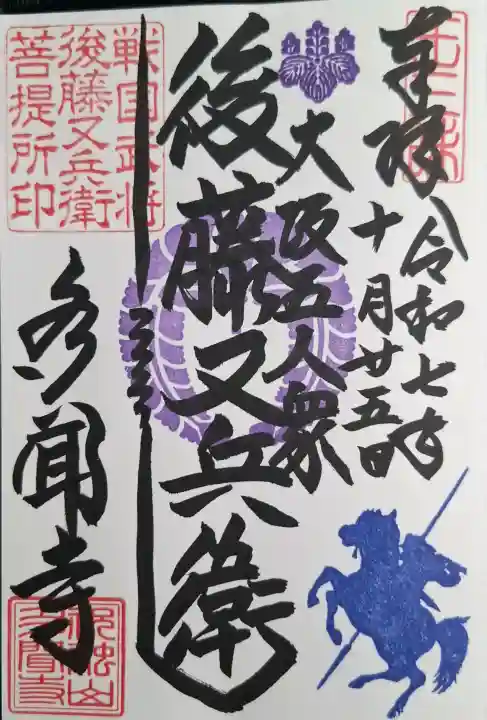 奉拝
令和七年
十月廿五日
大阪五人衆
後藤又兵衛
多聞寺
戦国武将
後藤又兵衛
菩提所印